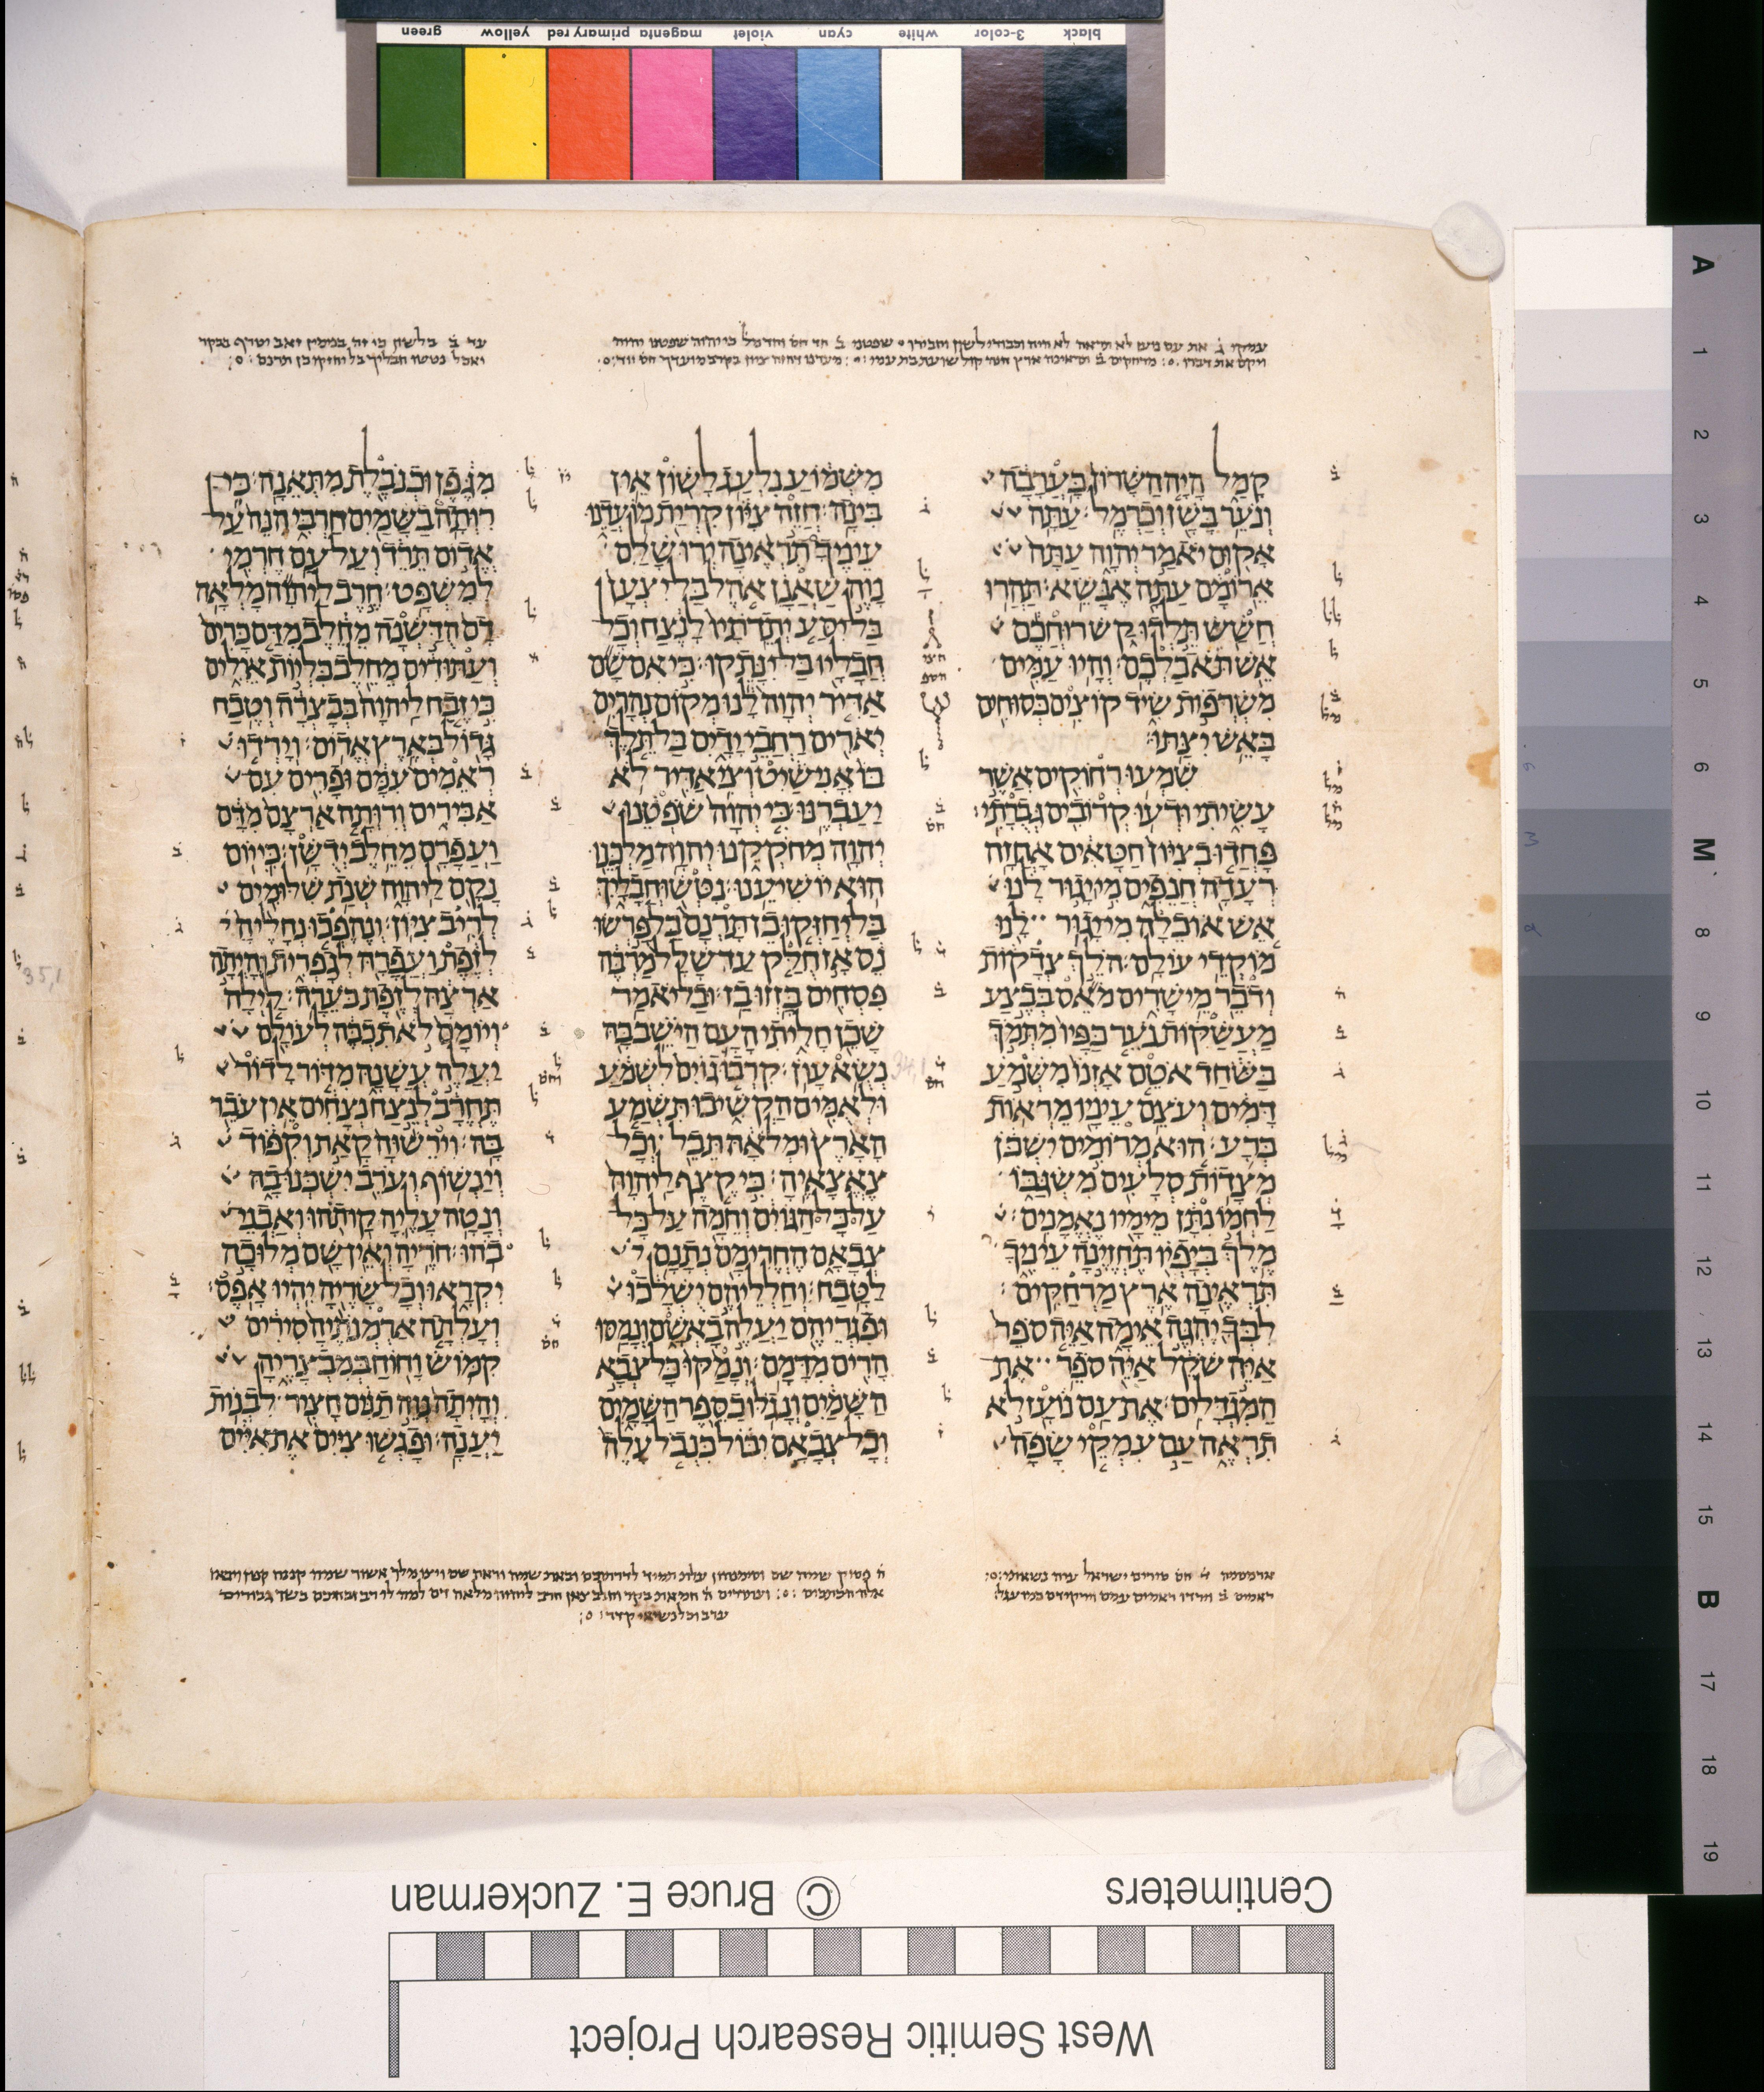 black 3-color white cyan violet magenta primary red yellow green
עמקי ג את עם נועז לא תראה
ויקם את דברו מרחקים ב תראינה ארץ הנה קול שועת בת עמי
יאכל נטשו חבליך בל יחזקו כן תרנם
קמל היה השרון כערבה
ונער בשן וכרמל׃ עתה
אקום יאמר יהוה עתה
ארומם עתה אנשא׃ תהרו
חשש תלדו קש רוחכם
אש תאכלכם׃ והיו עמים
משרפות שיד קוצים כסוחים
באש יצתו׃
שמעו רחוקים אשר
עשיתי ודעו קרובים גברתי׃
פחדו בציון חטאים אחזה
רעדה חנפים מי יגור לנו
אש אוכלה מי יגור לנו
מוקדי עולם׃ הלך צדקות
ודבר מישרים מאס בבצע
מעשקות נער כפיו מתמך
בשחד אטם אזנו משמע
דמים ועצם עיניו מראות
ברע׃ הוא מרומים ישכן
מצדות סלעים משגבו
לחמו נתן מימיו נאמנים׃
מלך ביפיו תחזינה עיניך
תראינה ארץ מרחקים׃
לבך יהגה אימה איה ספר
איה שקל איה ספר את
המגדלים׃ את עם נועז לא
תראה עם עמקי שפה
משמוע נלעג לשון אין
בינה׃ חזה ציון קרית מועדנו
עיניך תראינה ירושלם
נוה שאנן אהל בל יצען
בל יסע יתדתיו לנצח וכל
חבליו בל ינתקו׃ כי אם שם
אדיר יהוה לנו מקום נהרים
יארים רחבי ידים בל תלך
בו אני שיט וצי אדיר לא
יעברנו׃ כי יהוה שפטנו
יהוה מחקקנו יהוה מלכנו
הוא יושיענו׃ נטשו חבליך
בל יחזקו כן תרנם בל פרשו
נס אז חלק עד שלל מרבה
פסחים בזזו בז׃ ובל יאמר
שכן חליתי העם הישב בה
נשא עון׃ קרבו גוים לשמע
ולאמים הקשיבו תשמע
הארץ ומלאה תבל וכל
צאצאיה׃ כי קצף ליהוה
על כל הגוים וחמה על כל
צבאם החרימם נתנם
לטבח׃ וחלליהם ישלכו
ופגריהם יעלה באשם ונמסו
הרים מדמם׃ ונמקו כל צבא
השמים ונגלו כספר השמים
וכל צבאם יבול כנבל עלה
מגפן וכנבלת מתאנה׃ כי
רותה בשמים חרבי הנה על
אדום תרד ועל עם חרמי
למשפט׃ חרב ליהוה מלאה
דם הדשנה מחלב מדם כרים
ועתודים מחלב כליות אילים
כי זבח ליהוה בבצרה וטבח
גדול בארץ אדום׃ וירדו
ראמים עמם ופרים עם
אבירים ורותה ארצם מדם
ועפרם מחלב ידשן׃ כי יום
נקם ליהוה שנת שלומים
לריב ציון׃ ונהפכו נחליה
לזפת ועפרה לגפרית והיתה
ארצה לזפת בערה׃ לילה
ויומם לא תכבה לעולם
יעלה עשנה מדור לדור
תחרב לנצח נצחים אין עבר
בה׃ וירשוה קאת וקפוד
וינשוף וערב ישכנו בה
ונטה עליה קו תהו ואבני
בהו׃ חריה ואין שם מלוכה
יקראו וכל שריה יהיו אפס׃
ועלתה ארמנתיה סירים
קמוש וחוח במבצריה
והיתה נוה תנים חציר לבנות
יענה׃ ופגשו ציים את איים
ראמים ב וירדו ראמים עמם
ערב וכל נשיאי קדר
Centimeters © Bruce E. Zuckerman
West Semitic Research Project
A
1
2
3
4
5
6
M
8
9
10
11
12
13
14
15
B
17
18
19